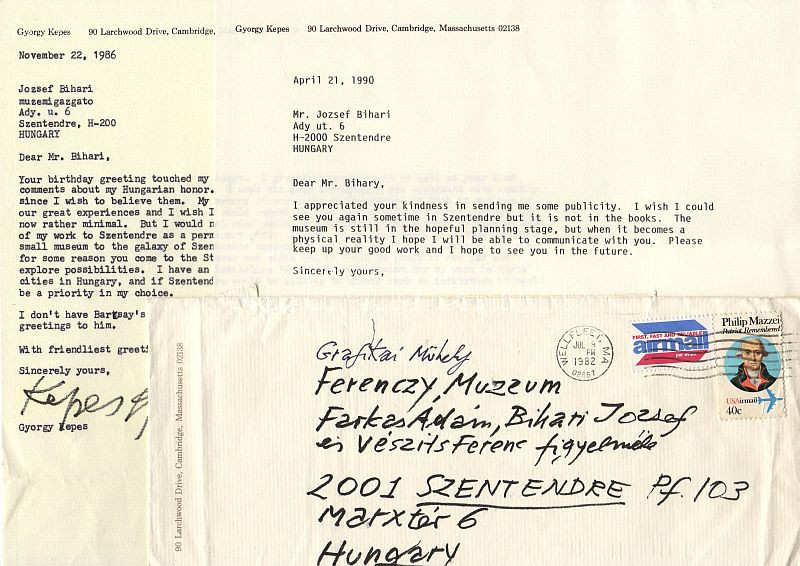 Gyorgy Kepes 90 Larchwood Drive, Cambridge,
November 22, 1986
Jozsef Bihari
muzemigazgato
Ady. u. 6
Szentendre, H-200
HUNGARY
Dear Mr. Bihari,
Your birthday greeting touched my
comments about my Hungarian honor.
since I wish to believe them. My
our great experiences and I wish I
now rather minimal. But I would n
of my work to Szentendre as a perm
small museum to the galaxy of Szen
for some reason you come to the St
explore possibilities. I have an
cities in Hungary, and if Szentend
be a priority in my choice.
I don't have Bartsay's
greetings to him.
With friendliest greeti
Sincerely yours,
Kepes Gy
Gyorgy Kepes
Gyorgy Kepes 90 Larchwood Drive, Cambridge, Massachusetts 02138
April 21, 1990
Mr. Jozsef Bihari
Ady ut. 6
H-2000 Szentendre
HUNGARY
Dear Mr. Bihary,
I appreciated your kindness in sending me some publicity. I wish I could
see you again sometime in Szentendre but it is not in the books. The
museum is still in the hopeful planning stage, but when it becomes a
physical reality I hope I will be able to communicate with you. Please
keep up your good work and I hope to see you in the future.
Sincerely yours,
90 Larchwood Drive, Cambridge, Massachusetts 02138
WELLFLEET, MA
JUL
PM
1982
02667
FIRST, FAST AND RELIABLE
airmail
par avion
Philip Mazzei
Patriot Remembered
USAirmail
40c
Grafikai Műhely
Ferenczy, Muzeum
Farkas Ádám, Bihari Jozsef
és Vészits Ferenc figyelmébe
2001 SZENTENDRE Pf. 103
Marx tér 6
Hungary